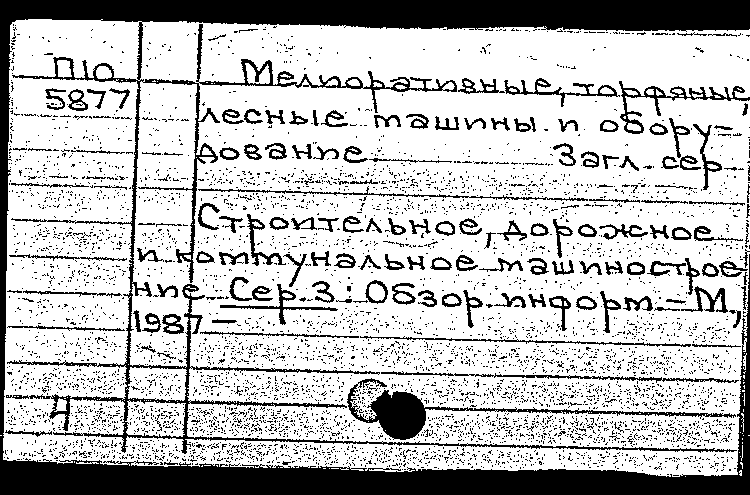 П10 Мелиоративные, торфяные,
5877 лесные машины и обору-
дование Загл. сер
Строительное, дорожное
и коммунальное машинострое
ние. Сер. 3: Обзор. информ. – М.,
1987 –
Ч